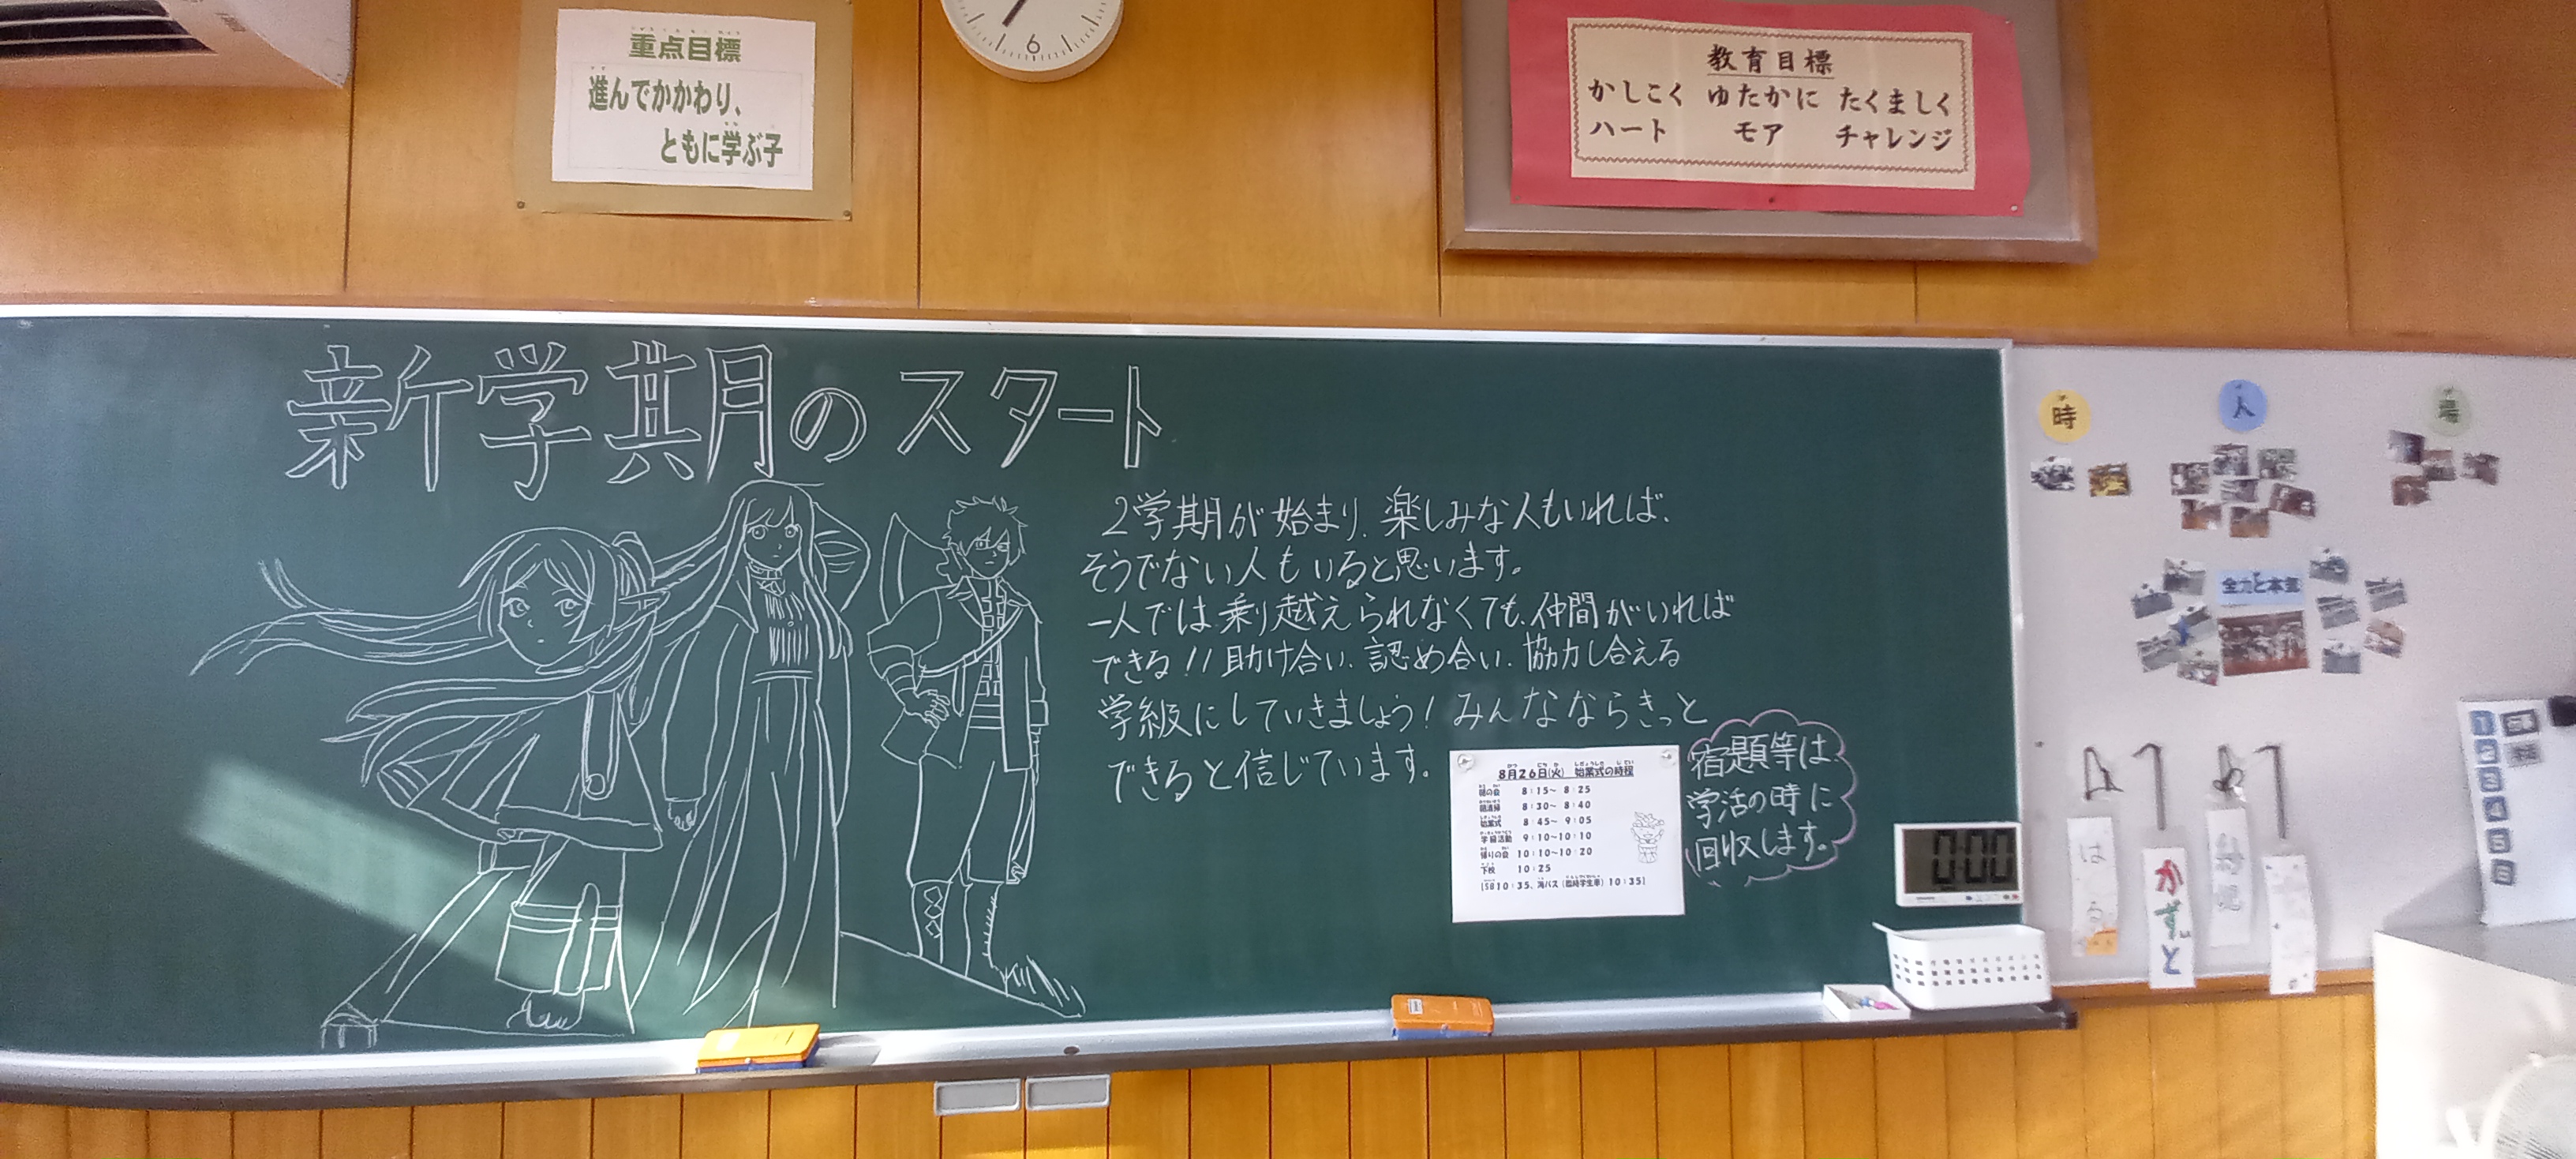 重点目標
進んでかかわり、
ともに学ぶ子
6
教育目標
かしこく ゆたかに たくましく
ハート モア チャレンジ
新学期のスタート
2学期が始まり、楽しみな人もいれば、
そうでない人もいると思います。
一人では乗り越えられなくても、仲間がいれば
できる!!助け合い、認め合い、協力し合える
学級にしていきましょう!みんなならきっと
できると信じています。
8月26日(火) 始業式の時程
朝の会 8:15~ 8:25
朝清掃 8:30~ 8:40
始業式 8:45~ 9:05
学級活動 9:10~10:10
帰りの会 10:10~10:20
下校 10:25
[SB10:35、海バス(臨時学生車) 10:35]
宿題等は、
学活の時に
回収します。
0:00
時
人
場
全力と本気
はる
かずと
1
2
3
4
5
6